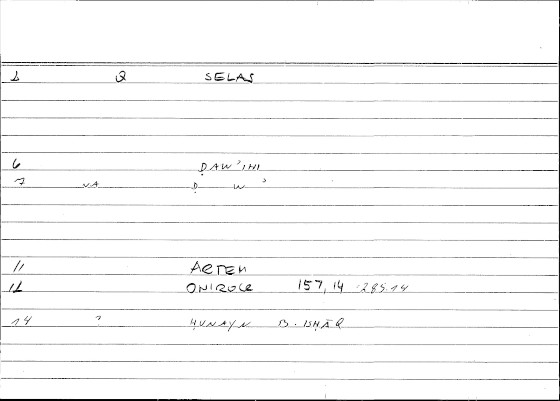 1 2 SELAS
6 ḌAW'IHI
7 NA Ḍ W '
11 ARTEM
12 ONIROCR 157,14 285.14
14 ? ḤUNAYN B. ISḤĀQ